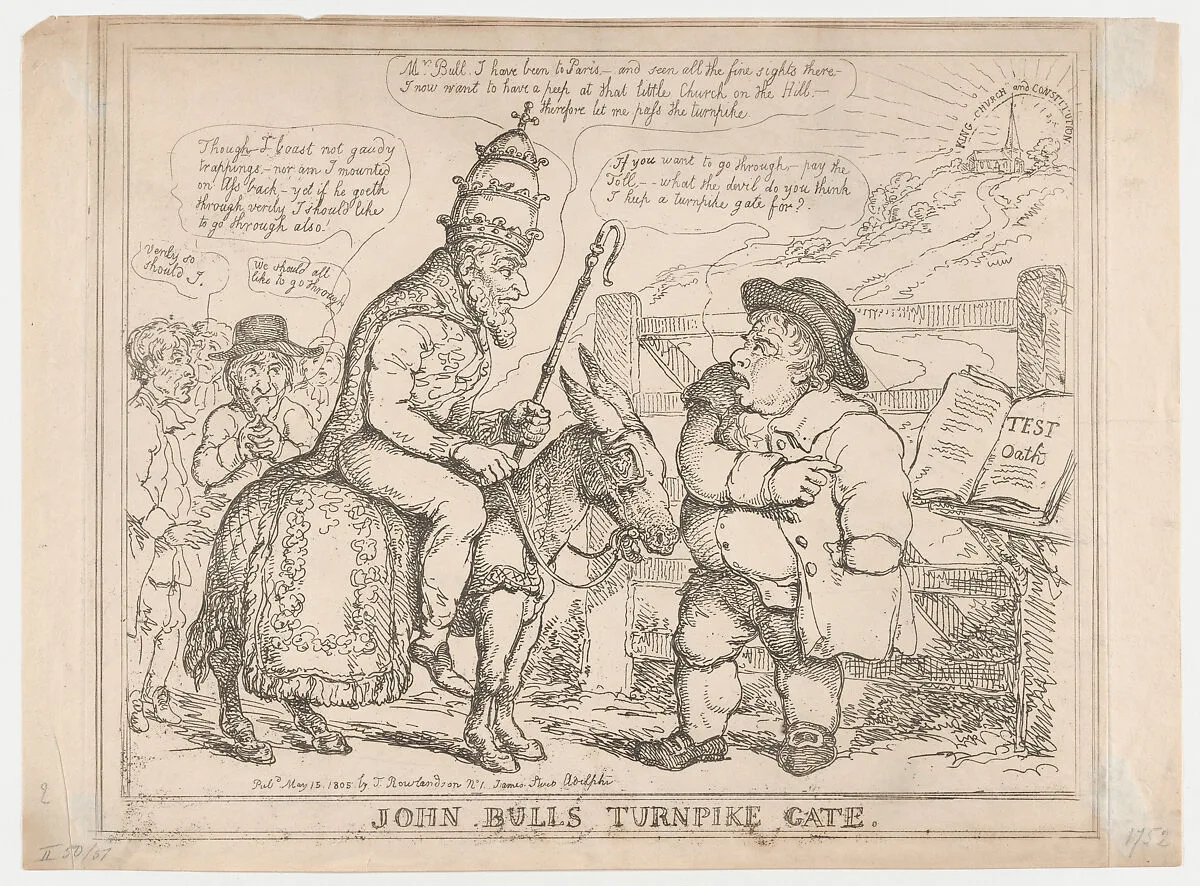 Mr. Bull. I have been to Paris — and seen all the fine sights there —
I now want to have a peep at that little Church on the Hill. —
therefore let me pass the turnpike
KING - CHURCH and CONSTITUTION
Though I boast not gaudy
trappings. — nor am I mounted
on Ass back — yet if he goeth
through, verily I should like
to go through also.
If you want to go through — pay the
Toll — - what the devil do you think
I keep a turnpike gate for?
Verily so
should I.
We should all
like to go through
TEST
Oath
Pubd. May 15. 1805 by T. Rowlandson No. 1. James Adelphi
JOHN BULLS TURNPIKE GATE.
II 50/57
1752